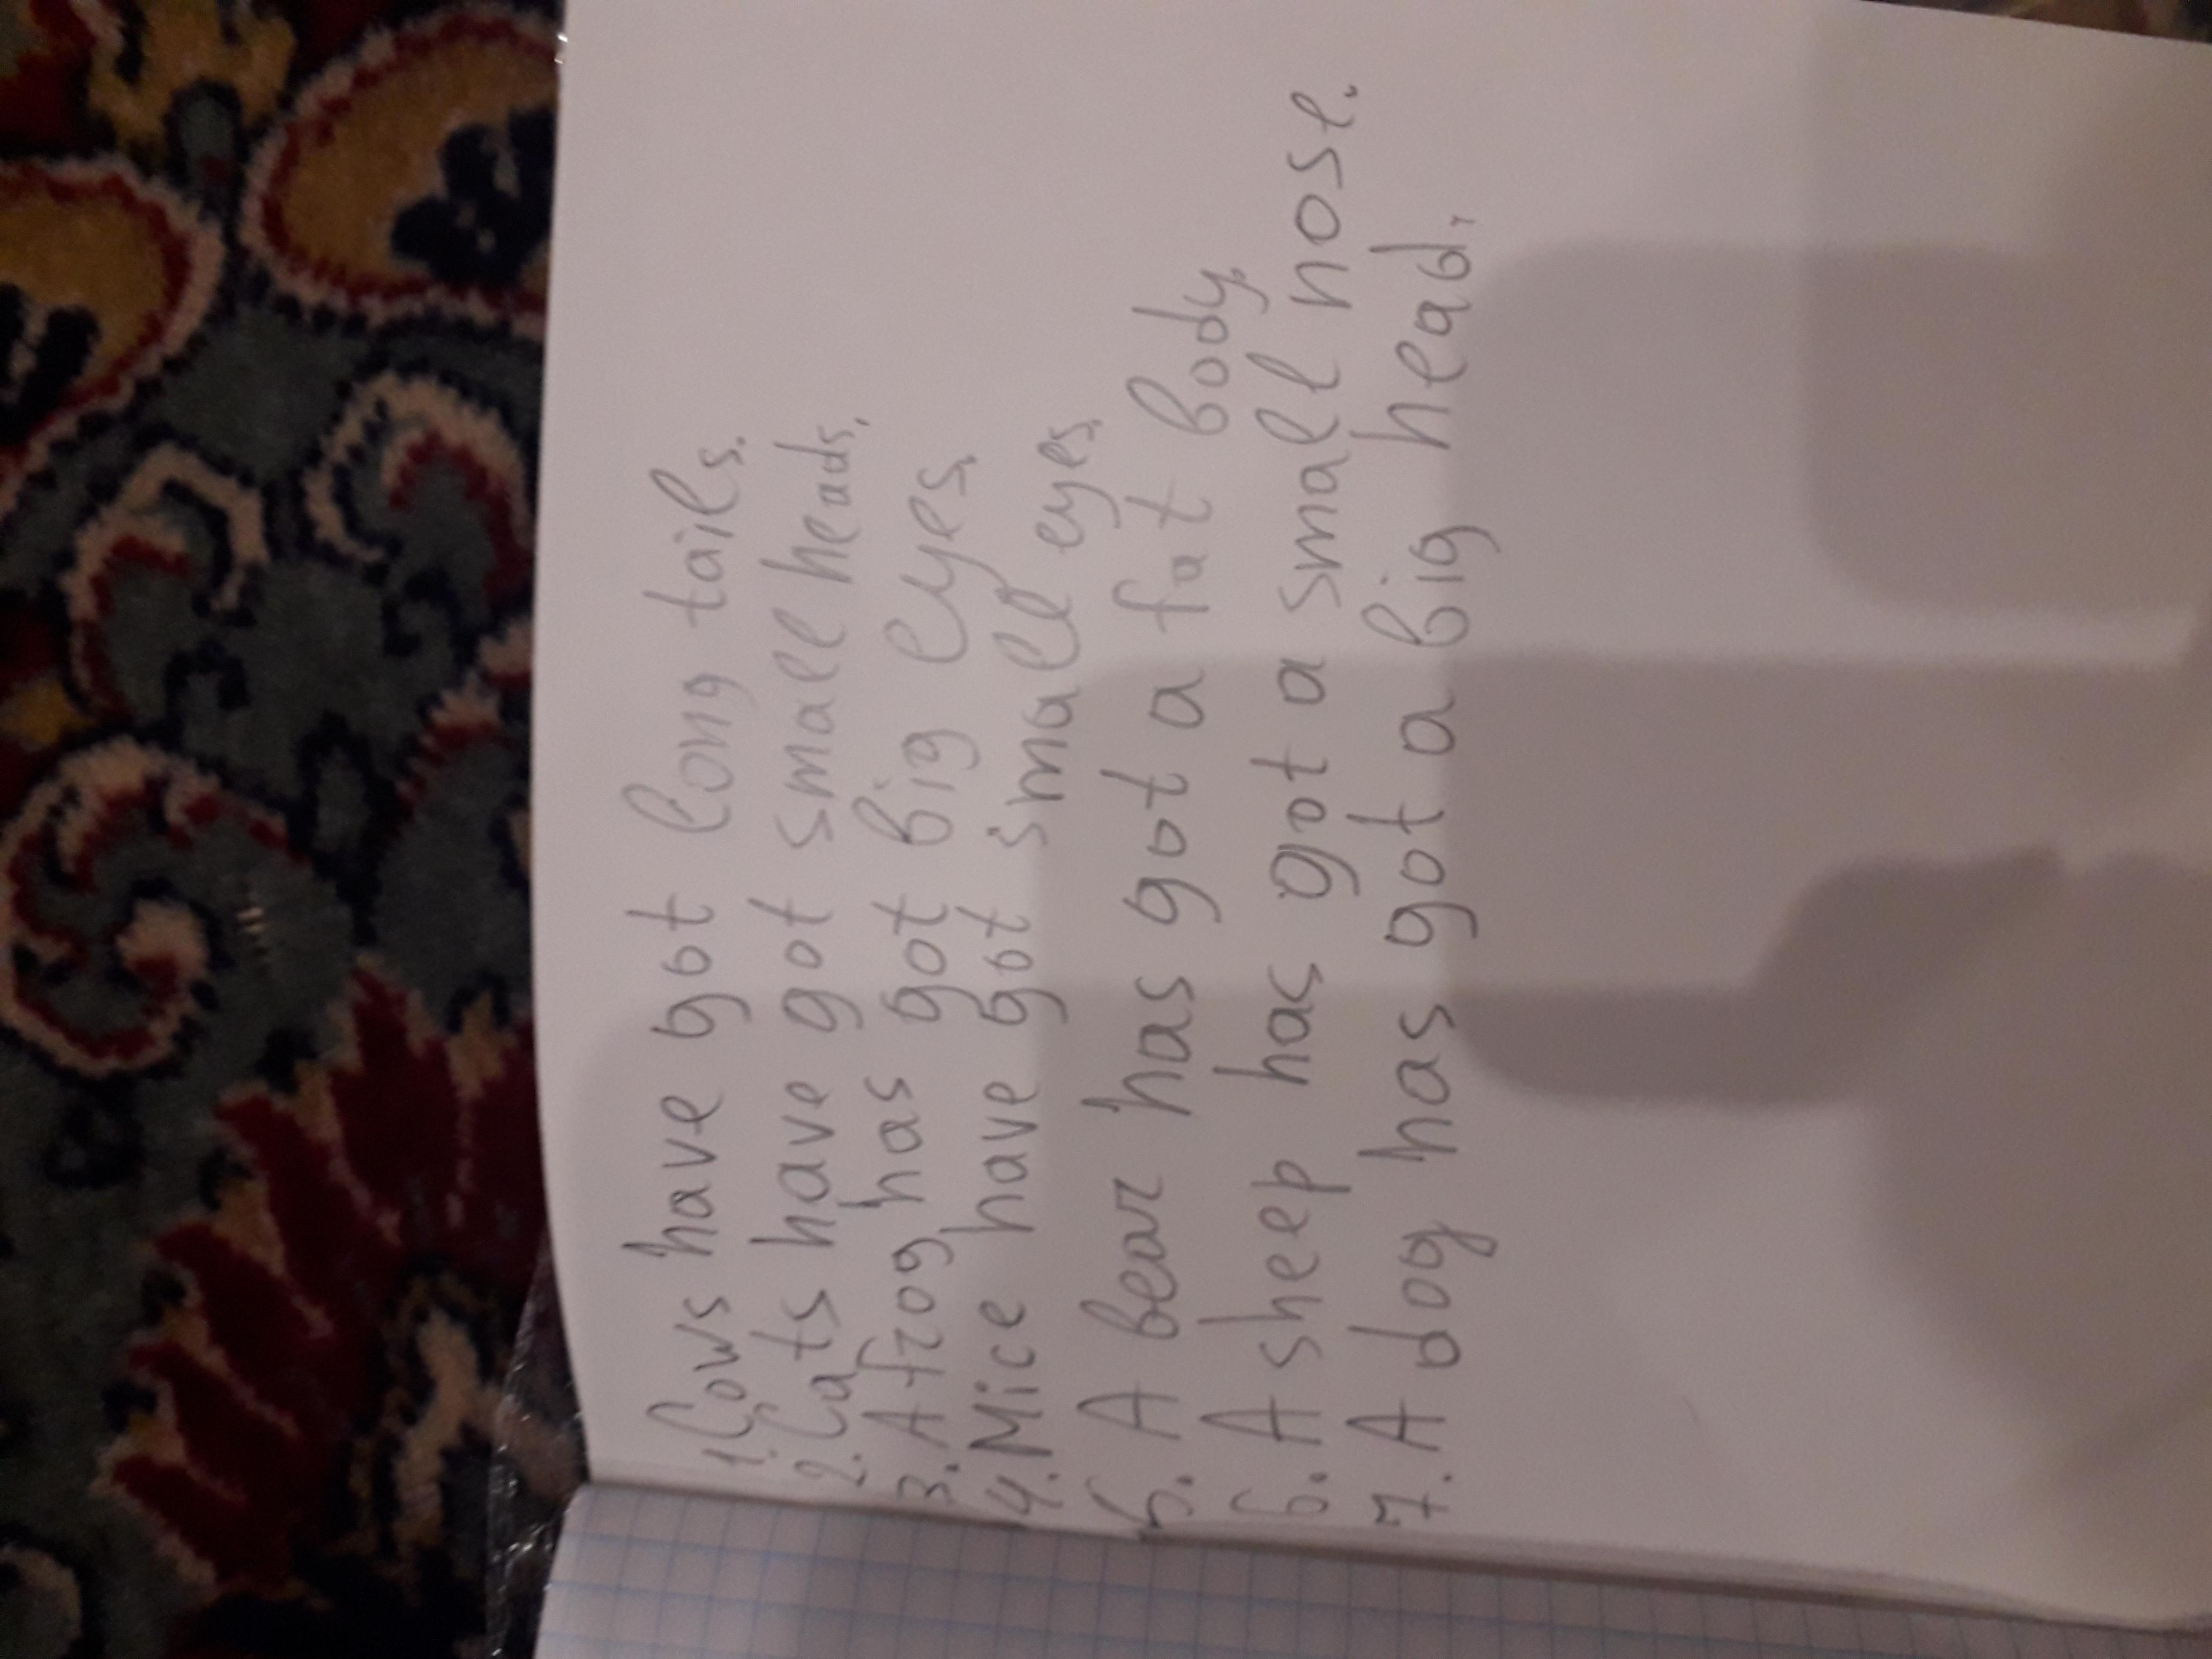 1. Cows have got long tails.
2. Cats have got small heads.
3. A frog has got big eyes.
4. Mice have got small eyes.
5. A bear has got a fat body.
6. A sheep has got a small nose.
7. A dog has got a big head.